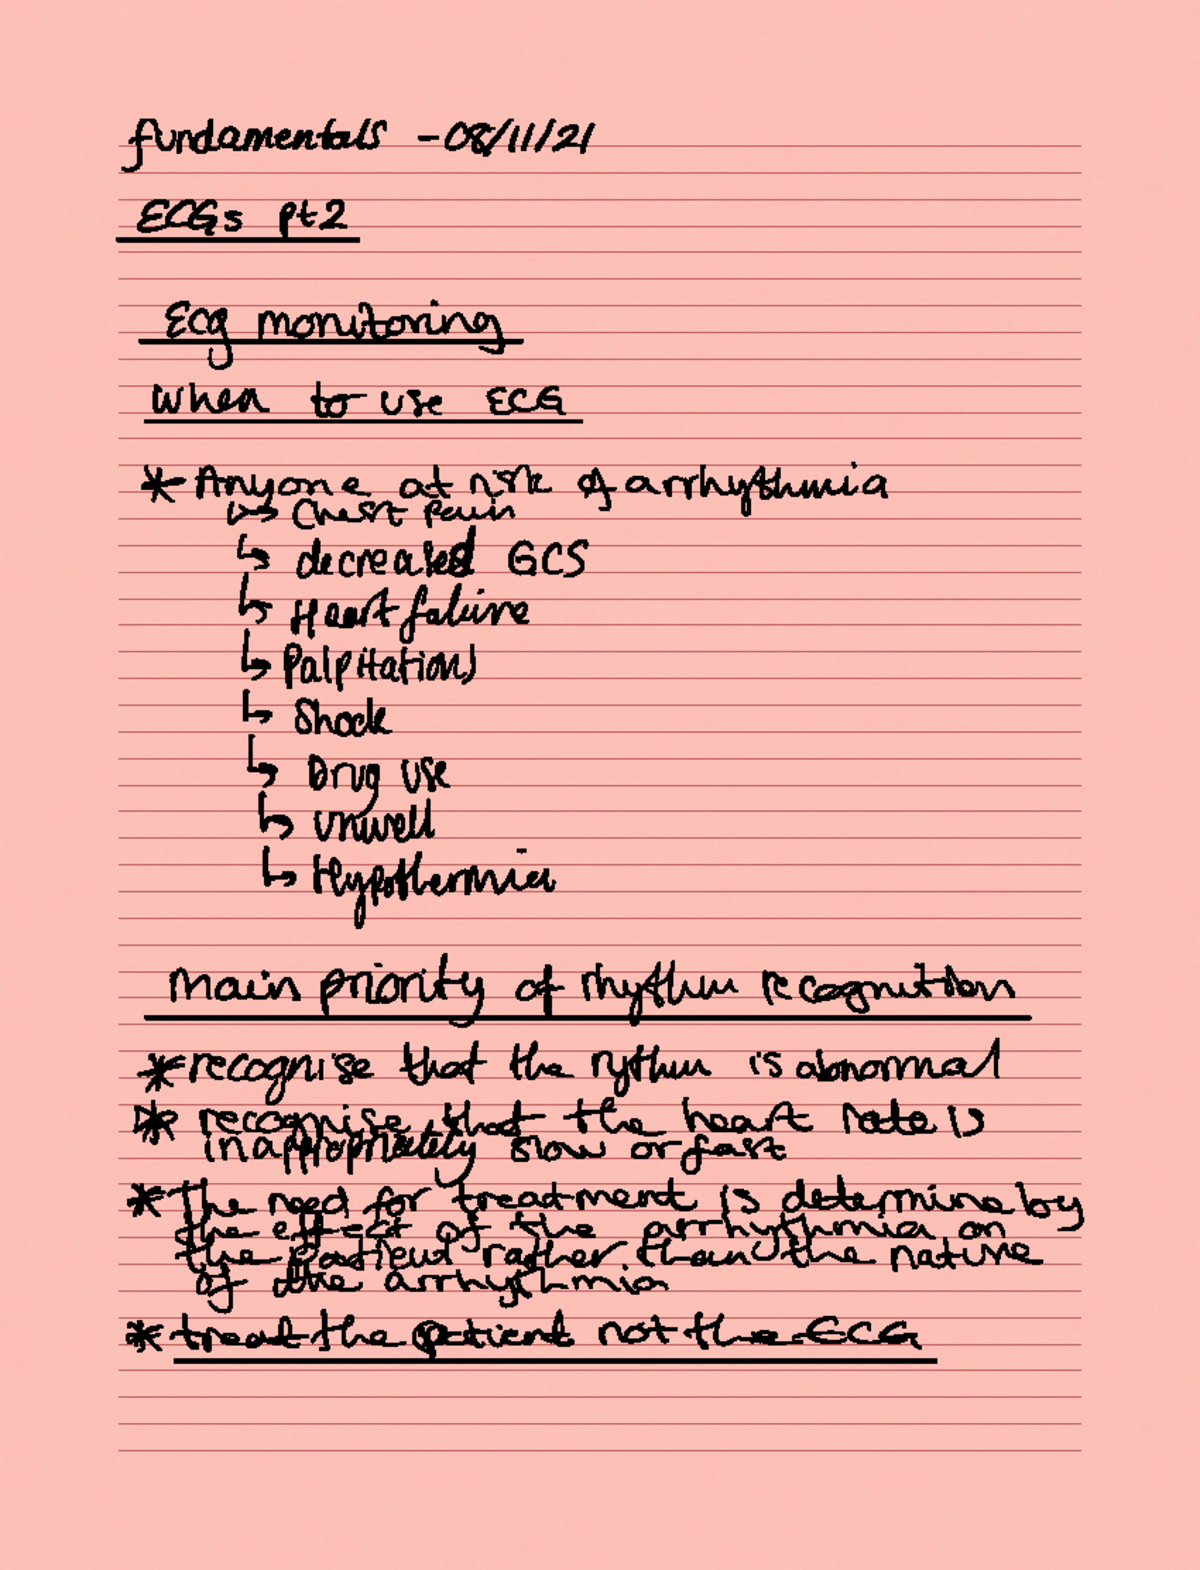 fundamentals - 08/11/21
ECGs pt2
Ecg monitoring
When to use ECG
* Anyone at risk of arrhythmia
↳ Chest pain
↳ decreased GCS
↳ Heart failure
↳ Palpitations
↳ Shock
↳ Drug use
↳ unwell
↳ Hypothermia
Main priority of rhythm recognition
* recognise that the rythm is abnormal
* recognise that the heart rate is
inappropriately slow or fast
* The need for treatment is determine by
the effect of the arrhythmia on
the patient rather than the nature
of the arrhythmia
* treat the patient not the ECG